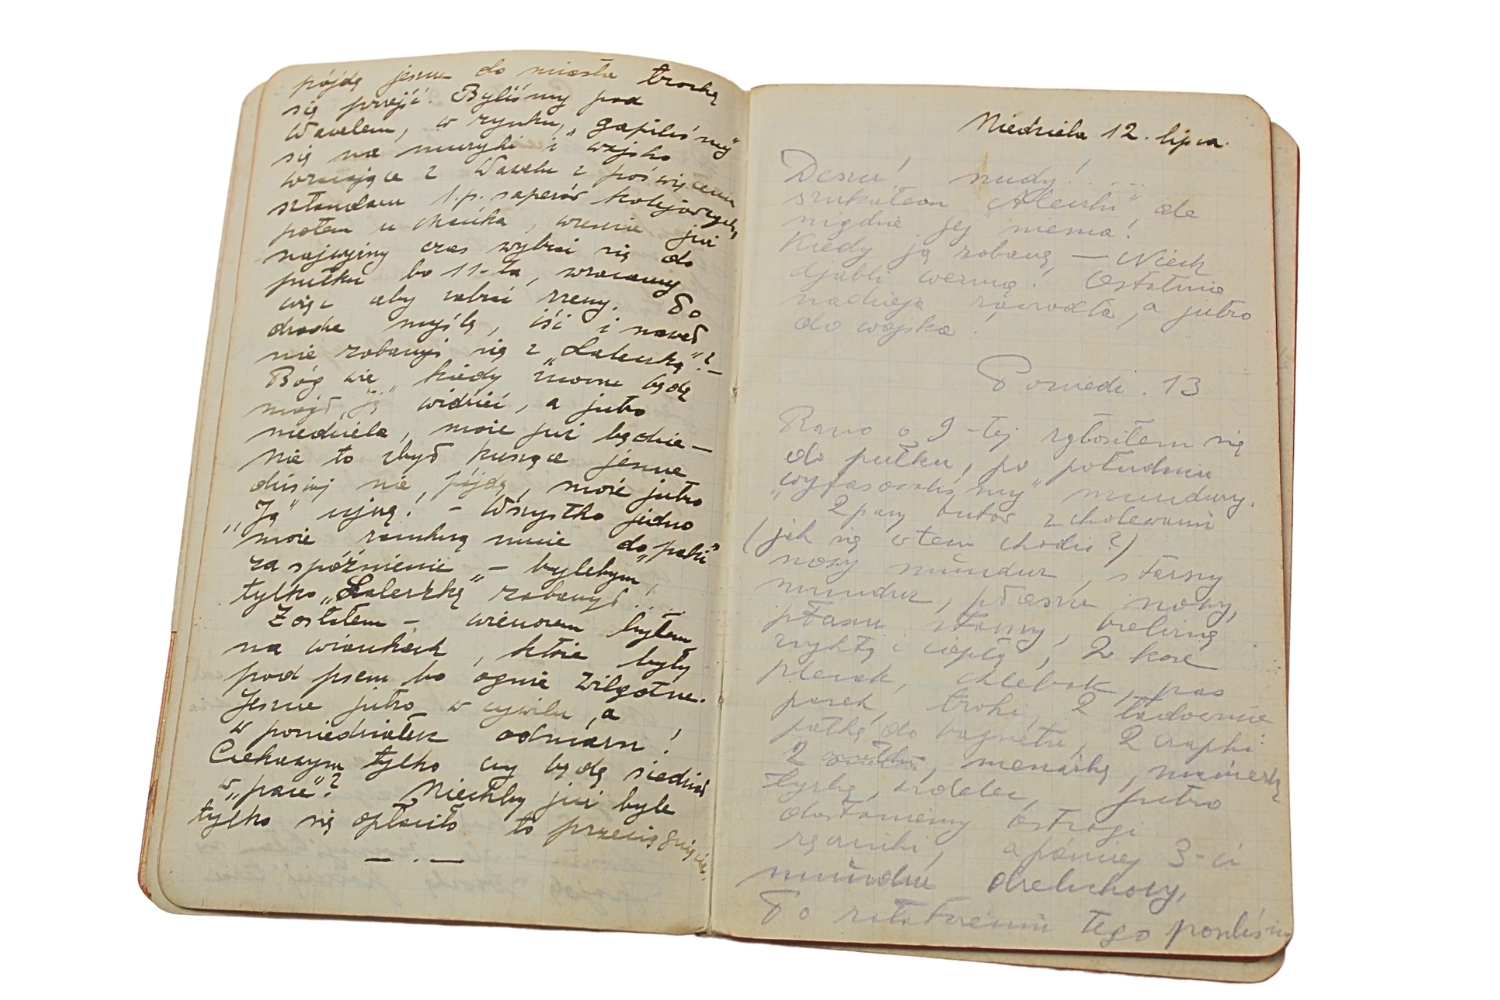 pójdę jeszcze do miasta trochę
się przejść. Byliśmy pod
Wawelem, w rynku, „gapiliśmy"
się na muzyki i wojsko
wracające z Wawelu z poświęcenia
sztandaru 1.p. saperów kolejowych,
potem u chauka, wreszcie już
najwyższy czas wybrać się do
pułku bo 11-ta, wracamy
więc aby zabrać rzeczy. Po
drodze myślę, iść i nawet
nie zobaczyć się z „Laleczką"? –
Bóg wie, kiedy znowu będę
mógł „ją" widzieć, a jutro
niedziela, może już będzie –
nie to zbyt kuszące jeszcze
dzisiaj nie pójdę, może jutro
„Ją" ujrzę! – Wszystko jedno
może zamkną mnie do „paki"
za spóźnienie – bylebym
tylko „Laleczkę" zobaczył!
Zostałem – wieczorem byłem
na wiankach, które były
pod psem bo ognie zilgotne.
Jeszcze jutro w cywilu, a
w poniedziałek odmarsz!
Ciekawym tylko czy będę siedział
w „pace"? Niechby już byle
tylko się opłaciło to przecierpię
— . —
Niedziela 12. lipca.
Deszcz! nudy!
szukałem „Aleczki" ale
nigdzie jej niema!
Kiedy ją zobaczę – Niech
djabli wezmą! Ostatnia
nadzieja zawiodła, a jutro
do wojska!
Poniedz. 13
Rano o 9-tej zgłosiłem się
do pułku, po południu
„wyfasowaliśmy" mundury.
2 pary butów z cholewami
(jak się w tem chodzi?)
nowy mundur, starszy
mundur, płaszcz nowy,
płaszcz stary, bieliznę
zwykłą i ciepłą, 2 koce
plecak, chlebak, pas
pasek, troki, 2 ładownice
żabkę do bagnetu, 2 czapki
2, menażkę, manierkę
łyżkę, widelec, jutro
dostaniemy ostrogi
ręczniki, a później 3-ci
mundur drelichowy,
Po załatwieniu tego poszliśmy